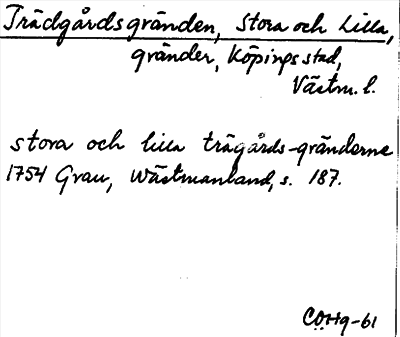 Trädgårdsgränden, Stora och Lilla,
gränder, Köpings stad,
Västm. l.
stora och lilla trägårds-gränderne
1754 Grau, Wästmanland, s. 187.
COHg-61